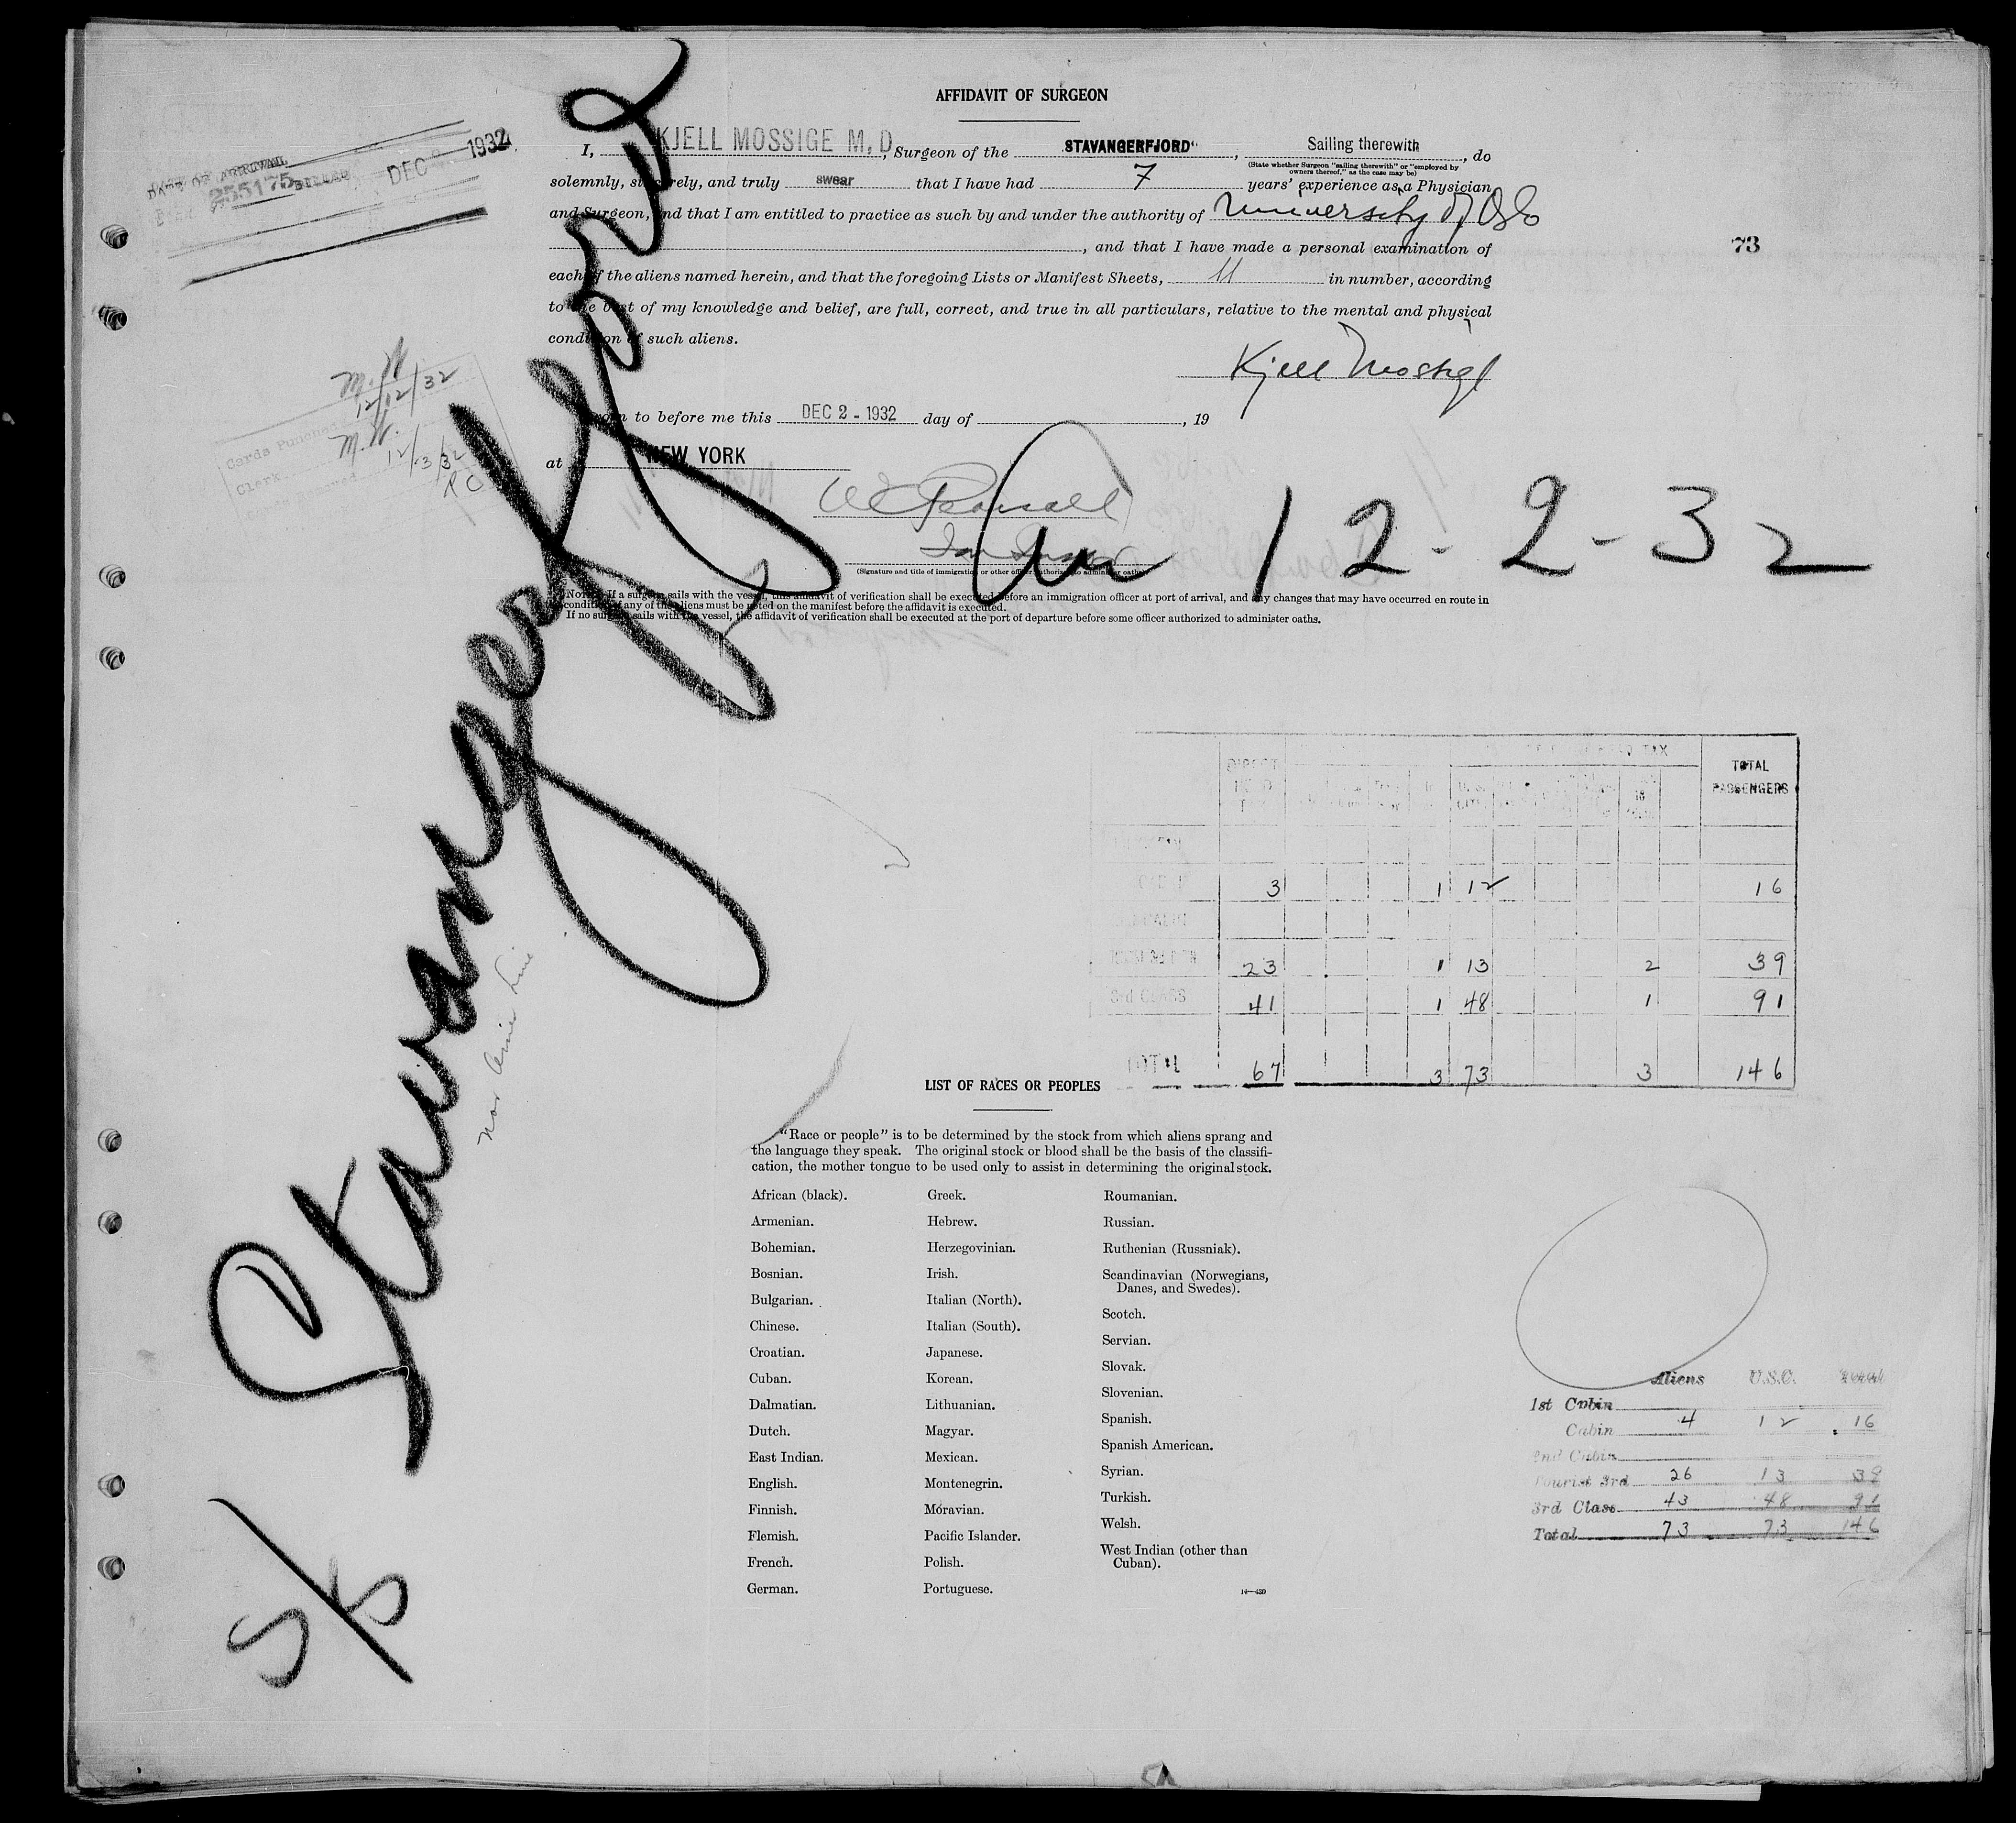 AFFIDAVIT OF SURGEON
I, KJELL MOSSIGE M.D., Surgeon of the STAVANGERFJORD", Sailing therewith, do
(State whether Surgeon "sailing therewith" or "employed by owners thereof," as the case may be)
solemnly, sincerely, and truly swear that I have had 7 years' experience as a Physician
and Surgeon, and that I am entitled to practice as such by and under the authority of University of Oslo
, and that I have made a personal examination of
each of the aliens named herein, and that the foregoing Lists or Manifest Sheets, 11 in number, according
to the best of my knowledge and belief, are full, correct, and true in all particulars, relative to the mental and physical
condition of such aliens.
Kjell Mossige
Sworn to before me this DEC 2 - 1932 day of , 19
at NEW YORK
(Signature and title of immigration or other officer authorized to administer oaths)
NOTE.—If a surgeon sails with the vessel, this affidavit of verification shall be executed before an immigration officer at port of arrival, and any changes that may have occurred en route in
the condition of any of the aliens must be noted on the manifest before the affidavit is executed.
If no surgeon sails with the vessel, the affidavit of verification shall be executed at the port of departure before some officer authorized to administer oaths.
DATE OF ARRIVAL
255175
DEC 1932
73
M.W.
12/12/32
Cards Punched
M.W.
Clerk
12/13/32
Stavangerfjord
S/S
Nor Amer Line
Arr 12-2-32
DIRECT HEAD TAX
TOTAL PASSENGERS
3 1 12 16
23 1 13 2 39
3rd CLASS 41 1 48 1 91
TOTAL 67 3 73 3 146
LIST OF RACES OR PEOPLES
"Race or people" is to be determined by the stock from which aliens sprang and
the language they speak. The original stock or blood shall be the basis of the classifi-
cation, the mother tongue to be used only to assist in determining the original stock.
African (black).
Armenian.
Bohemian.
Bosnian.
Bulgarian.
Chinese.
Croatian.
Cuban.
Dalmatian.
Dutch.
East Indian.
English.
Finnish.
Flemish.
French.
German.
Greek.
Hebrew.
Herzegovinian.
Irish.
Italian (North).
Italian (South).
Japanese.
Korean.
Lithuanian.
Magyar.
Mexican.
Montenegrin.
Moravian.
Pacific Islander.
Polish.
Portuguese.
Roumanian.
Russian.
Ruthenian (Russniak).
Scandinavian (Norwegians,
Danes, and Swedes).
Scotch.
Servian.
Slovak.
Slovenian.
Spanish.
Spanish American.
Syrian.
Turkish.
Welsh.
West Indian (other than
Cuban).
14—430
Aliens U.S.C. Total
1st Cabin
Cabin 4 12 16
2nd Cabin
Tourist 3rd 26 13 39
3rd Class 43 48 91
Total 73 73 146